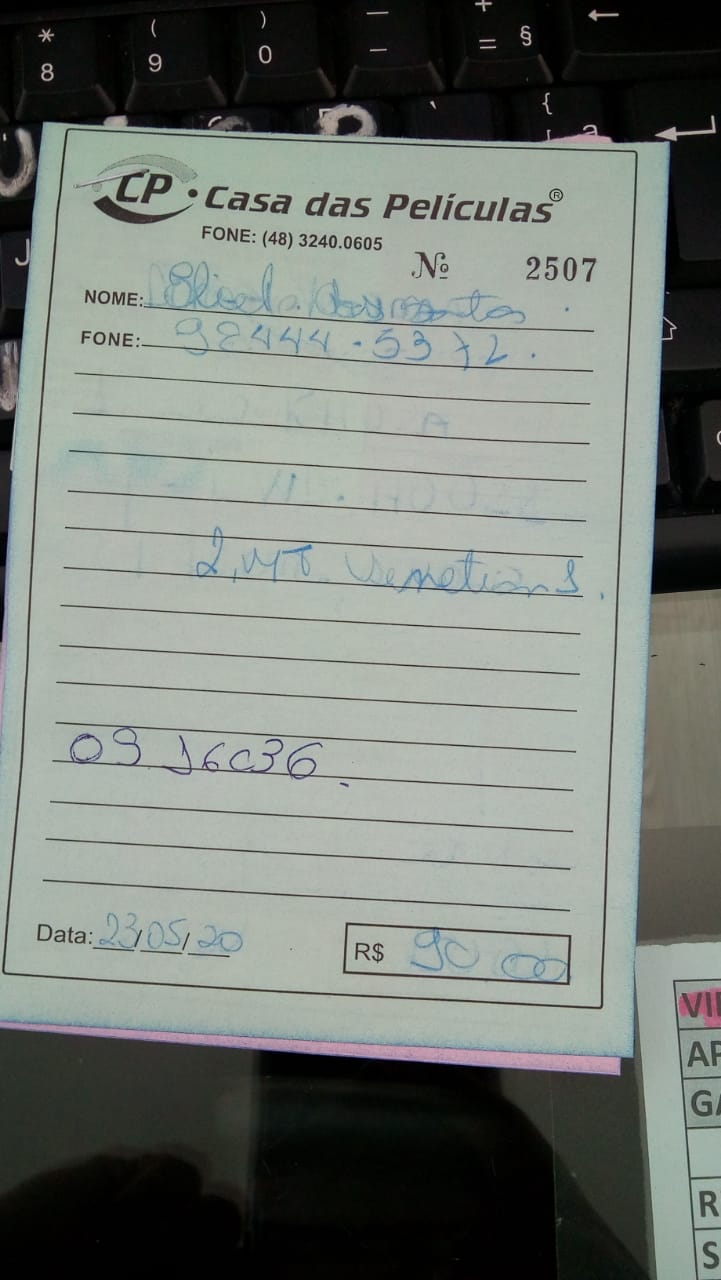 * ( ) — +
8 9 0 — = § ←
{
CP • Casa das Películas®
FONE: (48) 3240.0605
Nº 2507
NOME:
FONE: 98444.5372.
2,MT
0916036.
Data: 23/05/20
R$ 90 00
VI
AP
GA
R
S